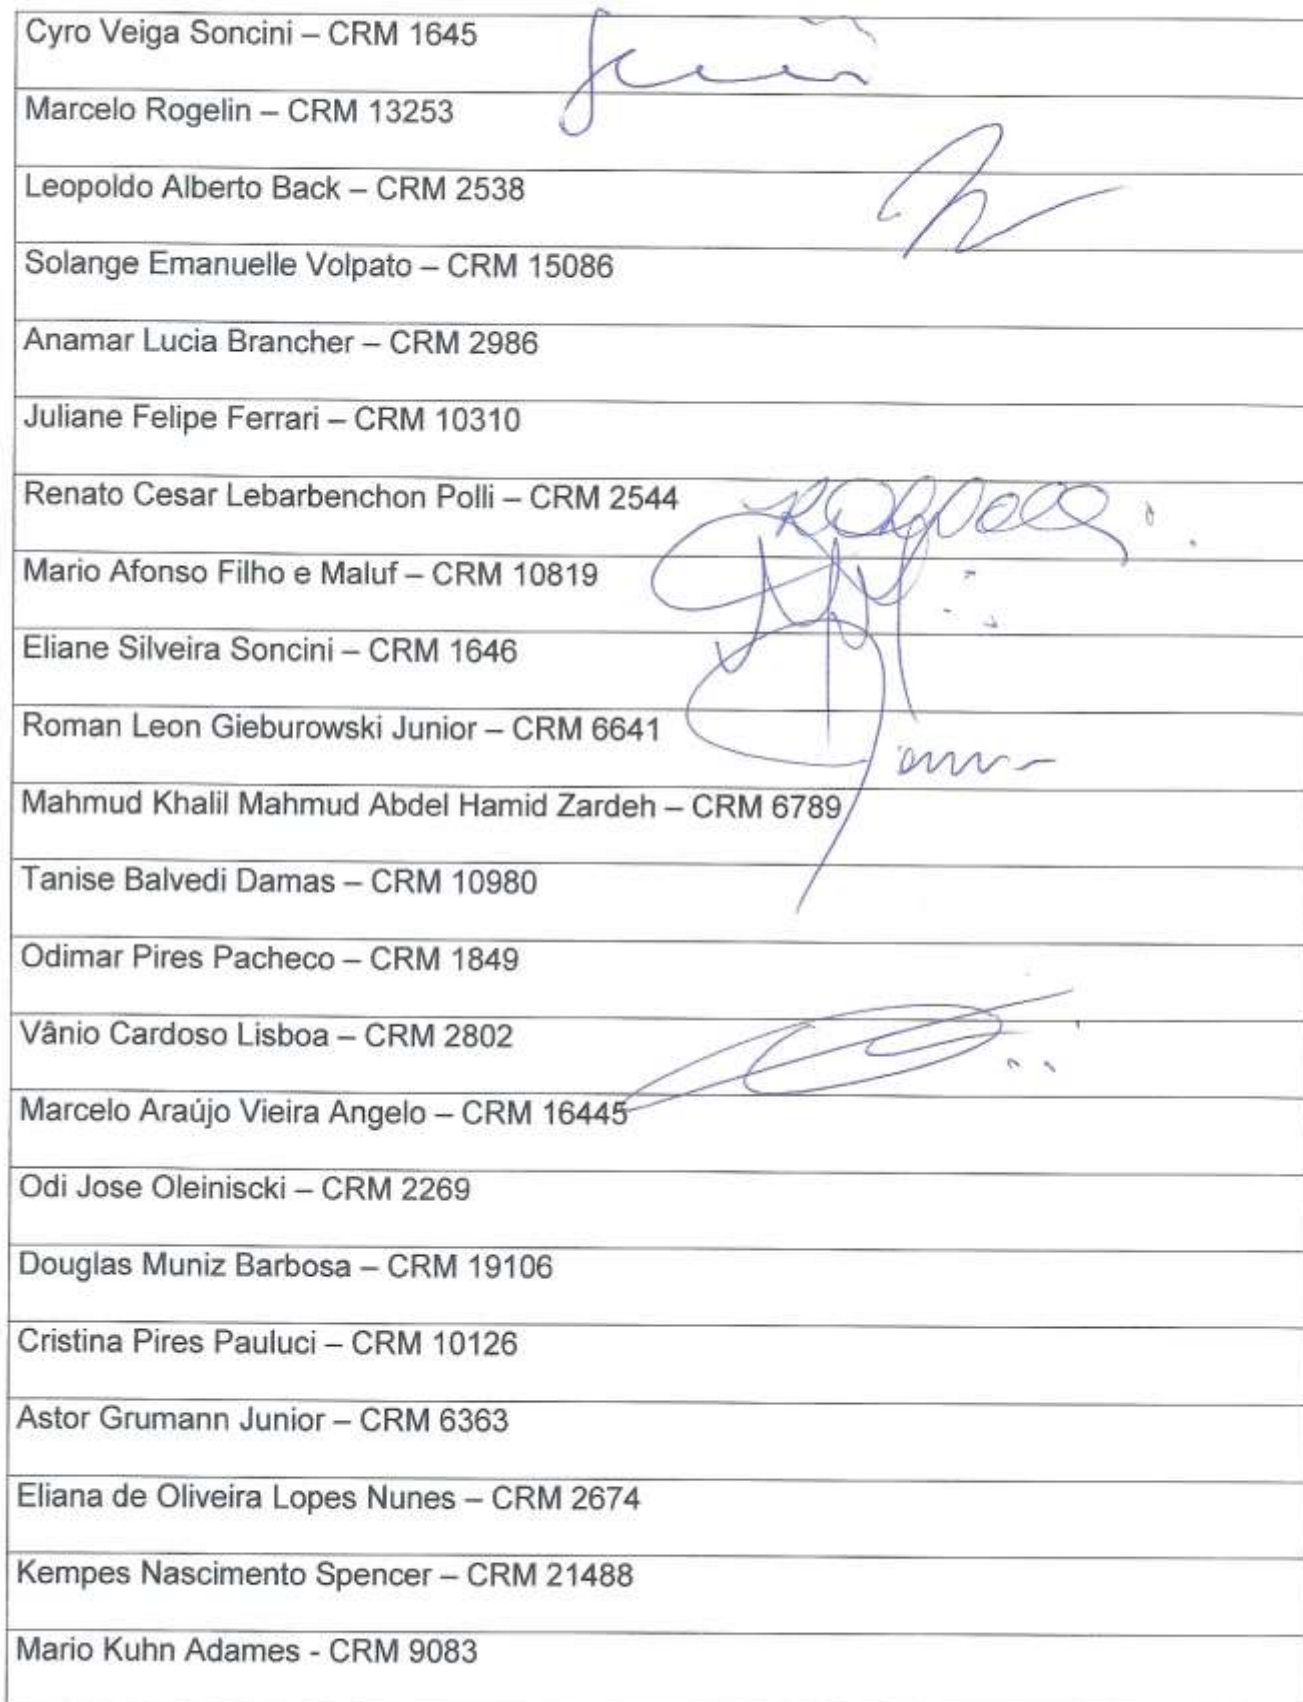 Cyro Veiga Soncini – CRM 1645
Marcelo Rogelin – CRM 13253
Leopoldo Alberto Back – CRM 2538
Solange Emanuelle Volpato – CRM 15086
Anamar Lucia Brancher – CRM 2986
Juliane Felipe Ferrari – CRM 10310
Renato Cesar Lebarbenchon Polli – CRM 2544
Mario Afonso Filho e Maluf – CRM 10819
Eliane Silveira Soncini – CRM 1646
Roman Leon Gieburowski Junior – CRM 6641
Mahmud Khalil Mahmud Abdel Hamid Zardeh – CRM 6789
Tanise Balvedi Damas – CRM 10980
Odimar Pires Pacheco – CRM 1849
Vânio Cardoso Lisboa – CRM 2802
Marcelo Araújo Vieira Angelo – CRM 16445
Odi Jose Oleiniscki – CRM 2269
Douglas Muniz Barbosa – CRM 19106
Cristina Pires Pauluci – CRM 10126
Astor Grumann Junior – CRM 6363
Eliana de Oliveira Lopes Nunes – CRM 2674
Kempes Nascimento Spencer – CRM 21488
Mario Kuhn Adames - CRM 9083